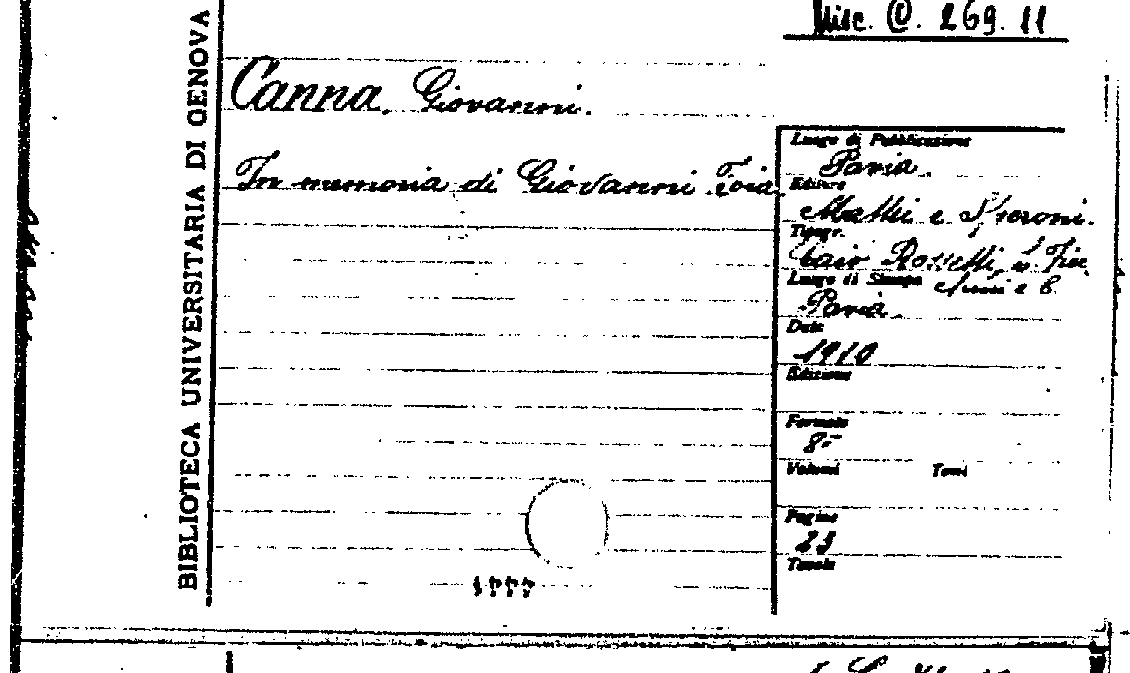 Misc. @. 269. 11
BIBLIOTECA UNIVERSITARIA DI GENOVA
Canna, Giovanni.
In memoria di Giovanni
Luogo di Pubblicazione
Pavia.
Editore
Mattei e Speroni.
Tipogr.
Rossetti,
Luogo di Stampa
Pavia.
Data
1910
Edizione
Formato
8°
Volumi Tomi
Pagine
23
Tavole